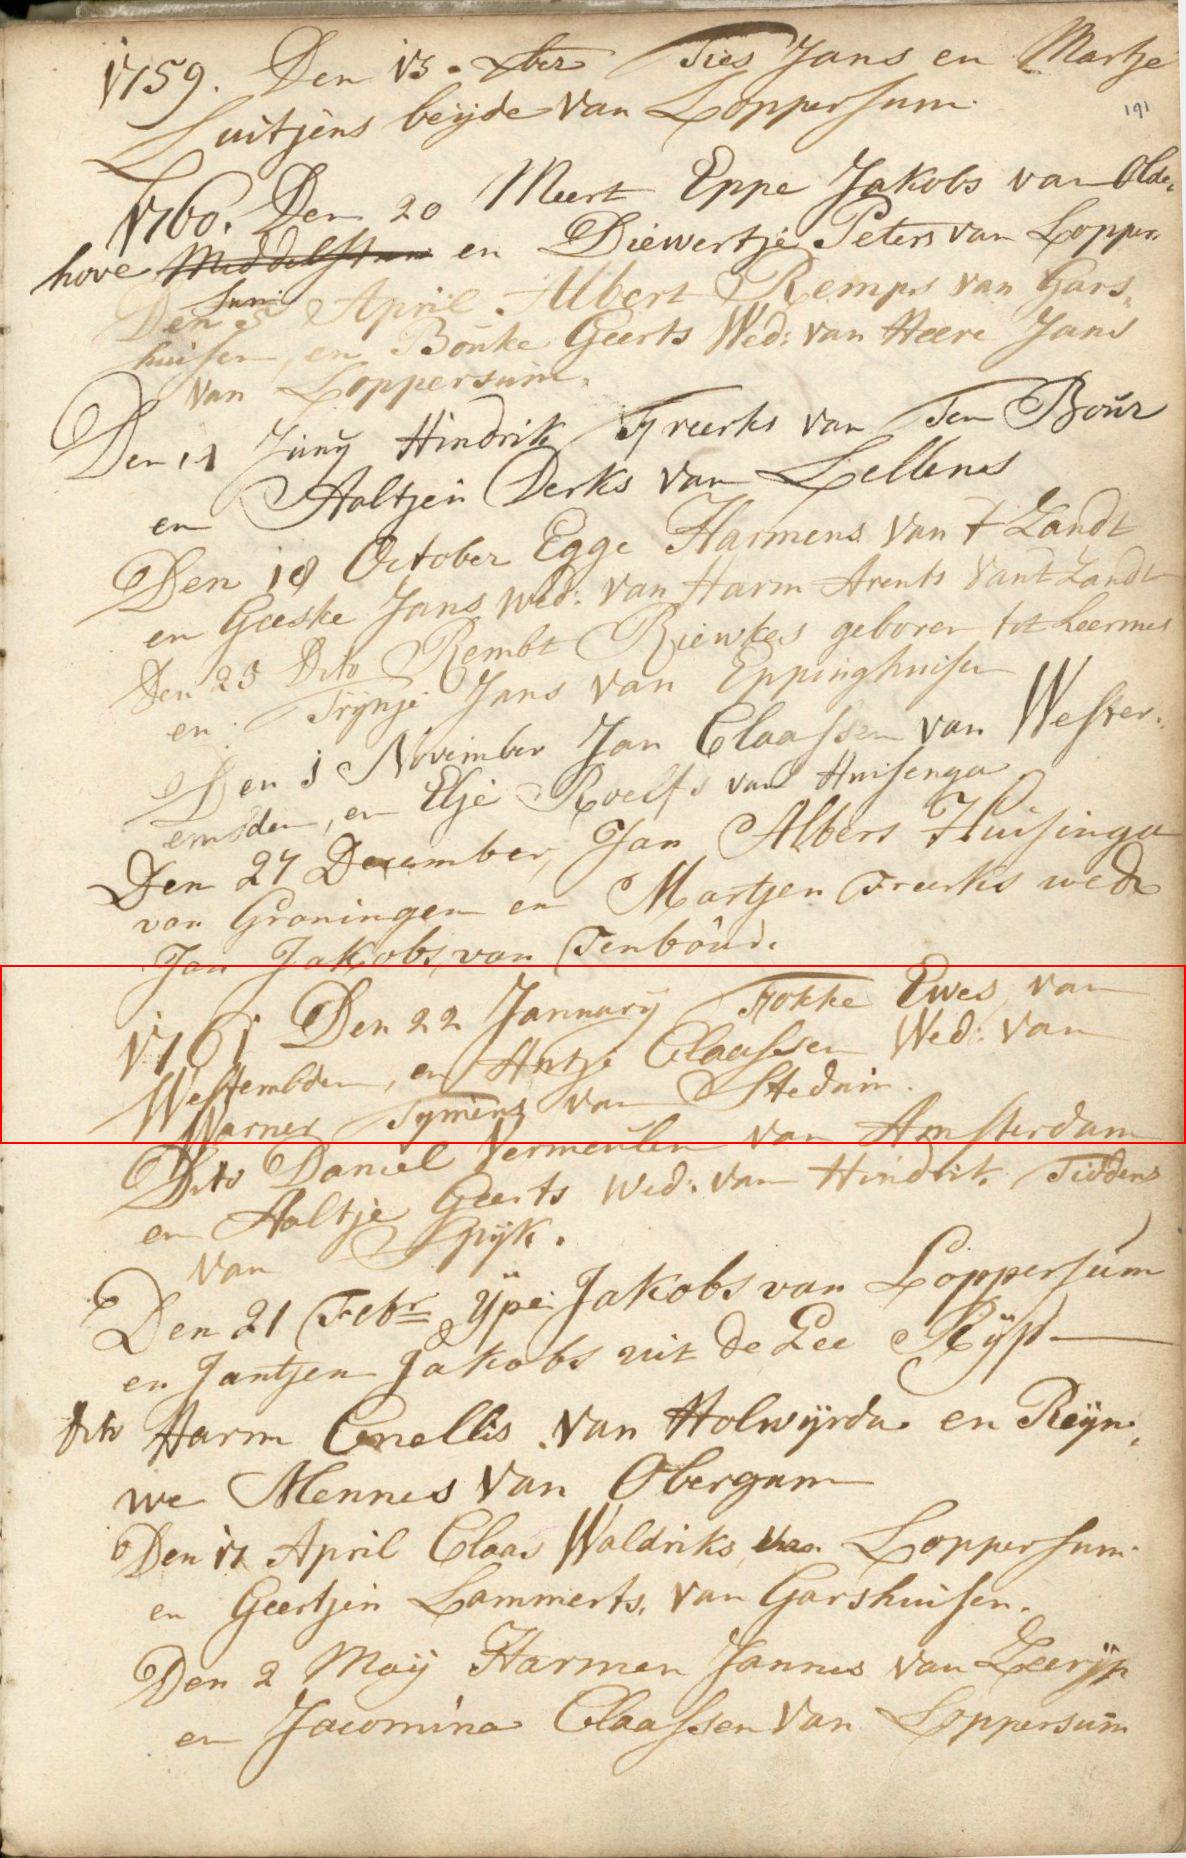 1759. Den 13. Xber Ties Jans en Martje
Luitjens beijde van Loppersum.
191
1760. Den 20 Meert Eppe Jakobs van Olde,
hove Middelstum en Diewertje Peters van Lopper,
sum
Den 5 April Albert Remps van Gars,
huisen, en Bouke Geerts Wed: van Heere Jans
van Loppersum.
Den 11 Junij Hindrik Freerks van Ten Bour
en Aaltjen Derks van Lellens
Den 18 October Egge Harmens van t Zandt
en Geeske Jans wed: van Harm Arents vant Zandt
Den 25 Dito Rembt Riewkes geboren tot Leermes
en Trijnje Jans van Eppinghuisen
Den 5 November Jan Claassen van Wester,
emsden, en Elje Roelfs van Huisenga
Den 27 December, Jan Albers Huisinga
van Groningen en Martjen Freerks wede
Jan Jakobs van Tenboūr.
1761 Den 22 Januarij Fokke Ewes van
Westembden, en Antje Claassen Wed: van
Warner Tymens van Stedum.
Dito Daniel Vermeulen van Amsterdam
en Aaltje Geerts Wed: van Hindrik Tiddens
van Spijk.
Den 21 Febr Ype Jakobs van Loppersum
en Jantjen Jakobs uit de Zee Rijp
dito Harm Cnellis van Holwijrda en Reijn,
we Mennes van Obergum
Den 17 April Claas Waldriks van Loppersum
en Geertjen Lammerts, van Garshuisen.
Den 2 Maij Harmen Jannes van Zeerijp
en Jacomina Claassen van Loppersum